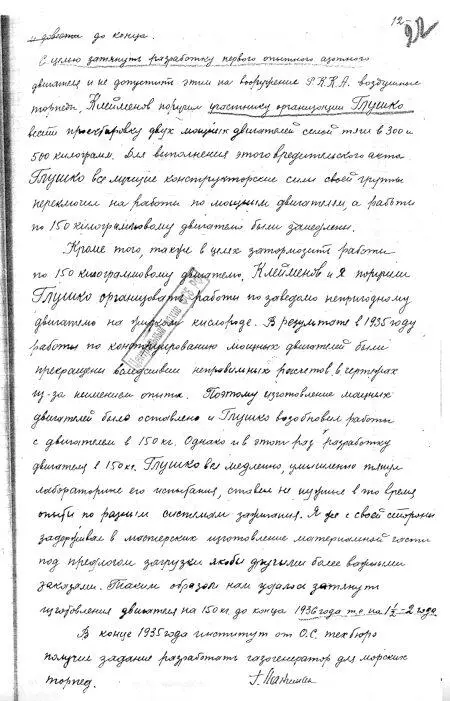 12-
92
и довести до конца.
С целью затянуть разработку первого опытного азотного
двигателя и не допустить этим на вооружение Р.К.К.А. воздушные
торпеды, Клейменов поручил участнику организации Глушко
вести проектировку двух мощных двигателей силой тяги в 300 и
500 килограмм. Для выполнения этого вредительского акта
Глушко все лучшие конструкторские силы своей группы
переключил на работы по мощным двигателям, а работы
по 150 килограммовому двигателю были замедлены.
Кроме того, также в целях затормозить работы
по 150 килограммовому двигателю, Клейменов и я поручили
Глушко организовать работы по заведомо непригодному
двигателю на жидком кислороде. В результате в 1935 году
работы по конструированию мощных двигателей были
прекращены вследствии неправильных расчетов, в чертежах
из-за неимением опыта. Поэтому изготовление мощных
двигателей было оставлено и Глушко возобновил работы
с двигателем в 150 кг. Однако и в этот раз разработку
двигателя в 150 кг. Глушко вел медленно, умышленно тянул
лабораторные его испытания, ставил не нужные в то время
опыты по разным системам зажигания. Я же с своей стороны
задерживал в мастерских изготовление материальной части
под предлогом загрузки якобы другими более важными
заказами. Таким образом нам удалось затянуть
изготовления двигателя на 150 кг. до конца 1936 года т.е. на 1½-2 года.
В конце 1935 года институт от О.С. техбюро
получил задание разработать газогенератор для морских
торпед.
Г. Лангемак